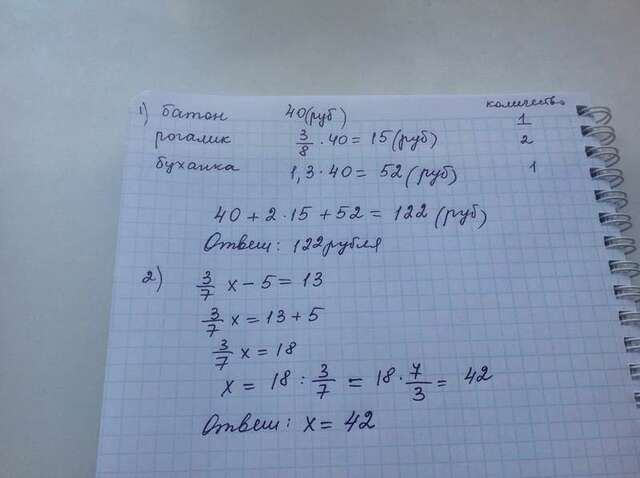 количество
1) батон 40(руб) 1
рогалик 3/8 · 40 = 15 (руб) 2
буханка 1,3 · 40 = 52 (руб) 1
40 + 2 · 15 + 52 = 122 (руб)
Ответ: 122 рубля
2) 3/7 x − 5 = 13
3/7 x = 13 + 5
3/7 x = 18
x = 18 : 3/7 = 18 · 7/3 = 42
Ответ: x = 42